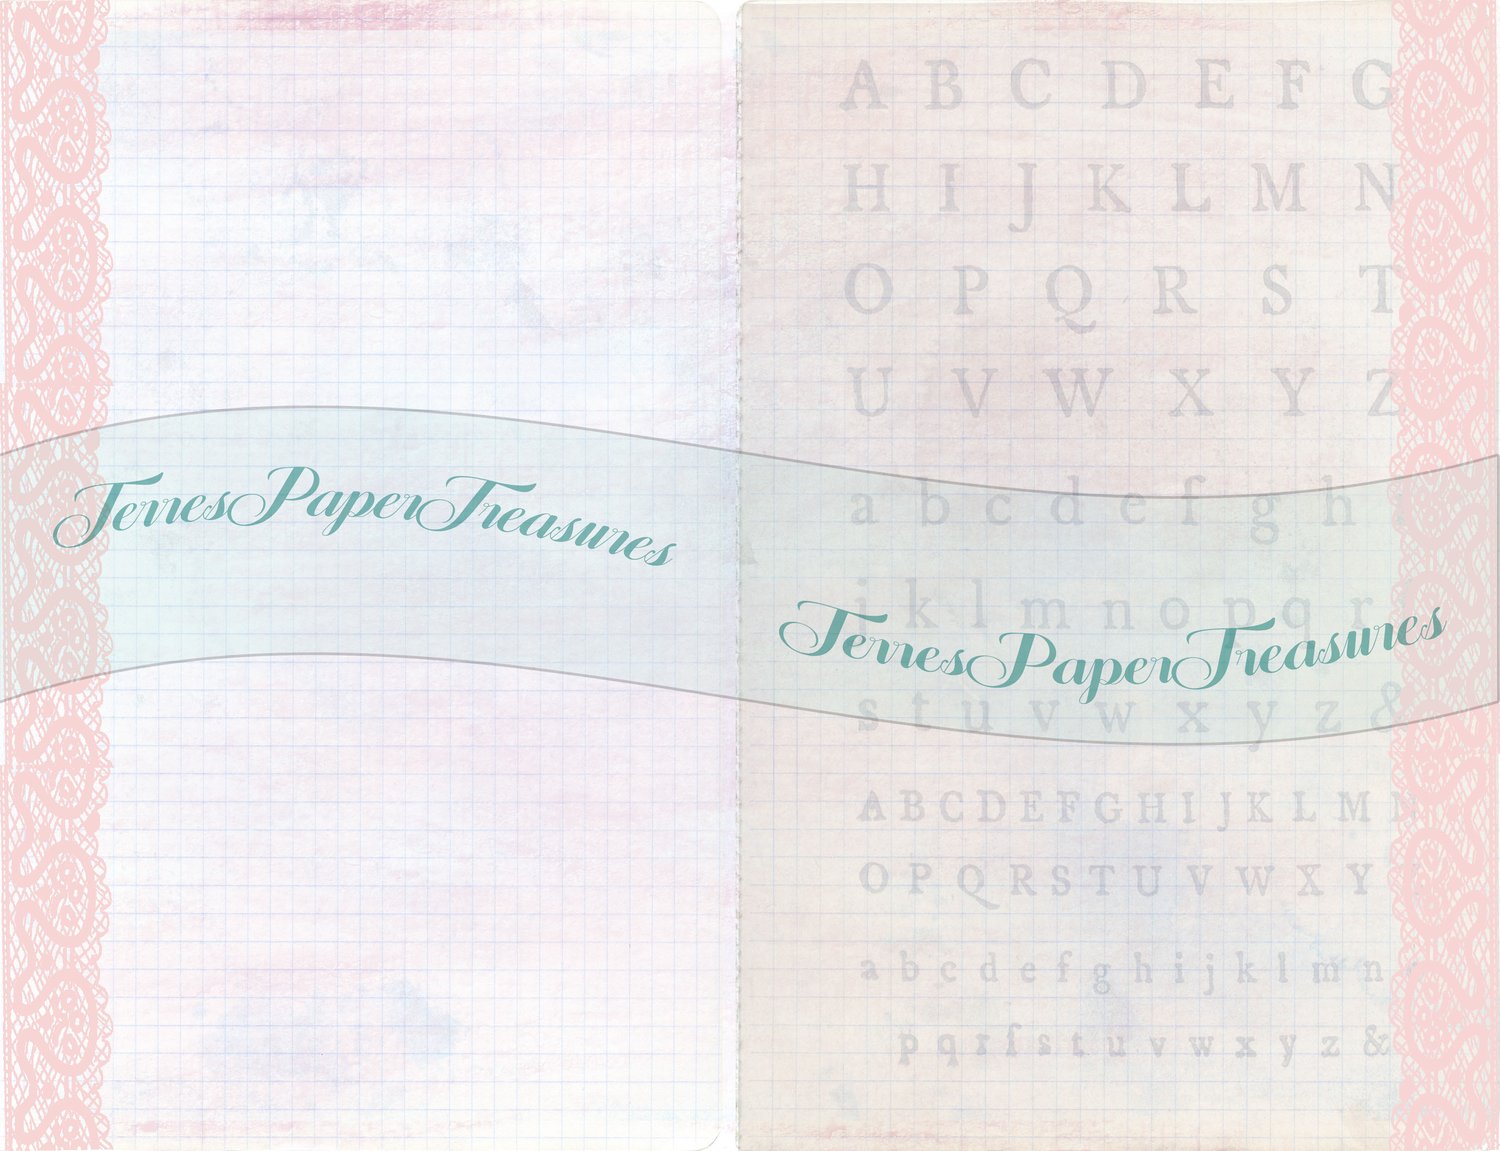 TerresPaperTreasures
A B C D E F G
H I J K L M N
O P Q R S T
U V W X Y Z
a b c d e f g h
j k l m n o p q r
TerresPaperTreasures
s t u v w x y z &
A B C D E F G H I J K L M N
O P Q R S T U V W X Y
a b c d e f g h i j k l m n
p q r ſ s t u v w x y z &